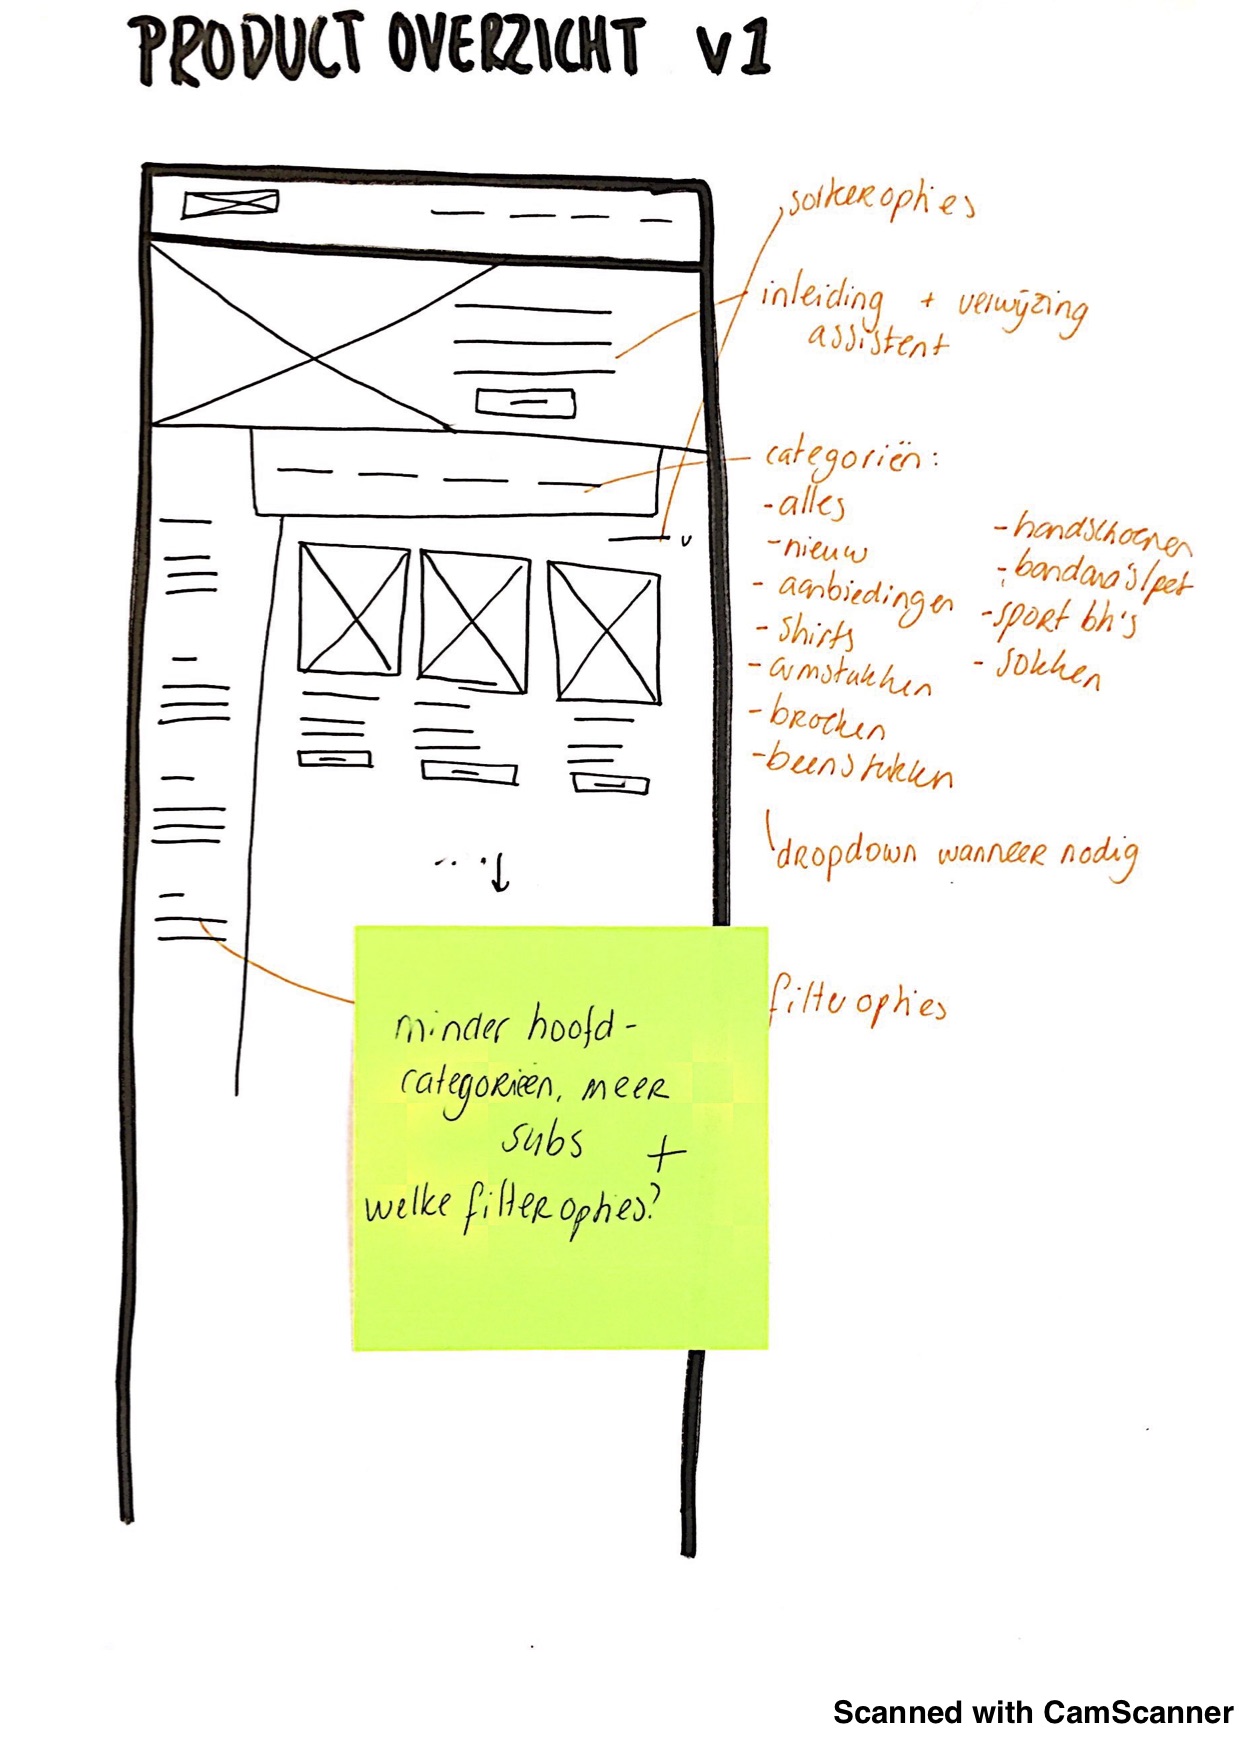 PRODUCT OVERZICHT v1
sorteeropties
inleiding + verwijzing
assistent
categoriën:
- alles
- nieuw
- aanbiedingen
- shirts
- armstukken
- broeken
- beenstukken
- handschoenen
- bandana's/pet
- sport bh's
- sokken
dropdown wanneer nodig
filteropties
minder hoofd-
categorieën, meer
subs +
welke filteropties?
Scanned with CamScanner